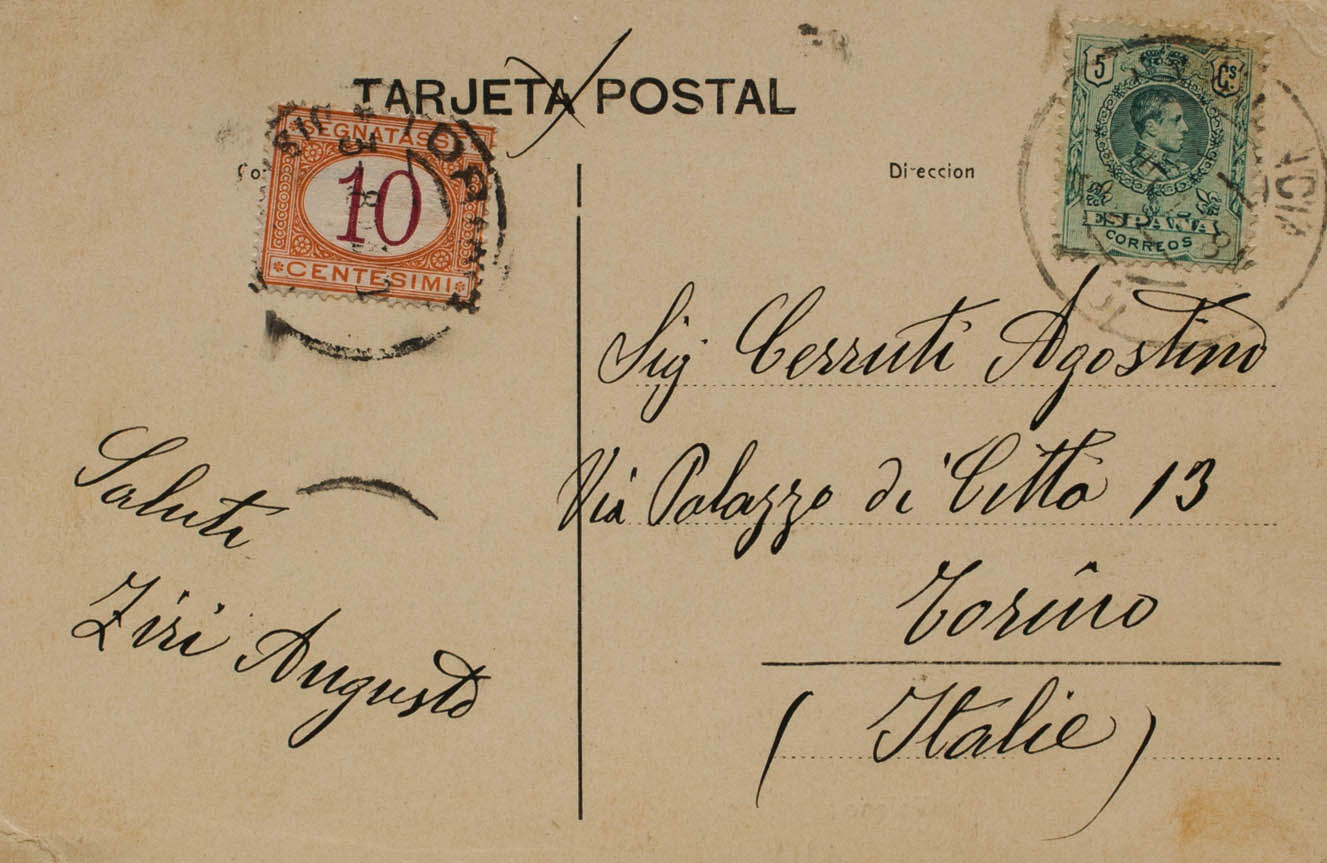 TARJETA POSTAL
SEGNATASSE
10
CENTESIMI
TORINO
5 Cs
ESPAÑA
CORREOS
Direccion
Sig Cerruti Agostino
Via Palazzo di Città 13
Torino
(Italie)
Saluti
Ziri Augusto